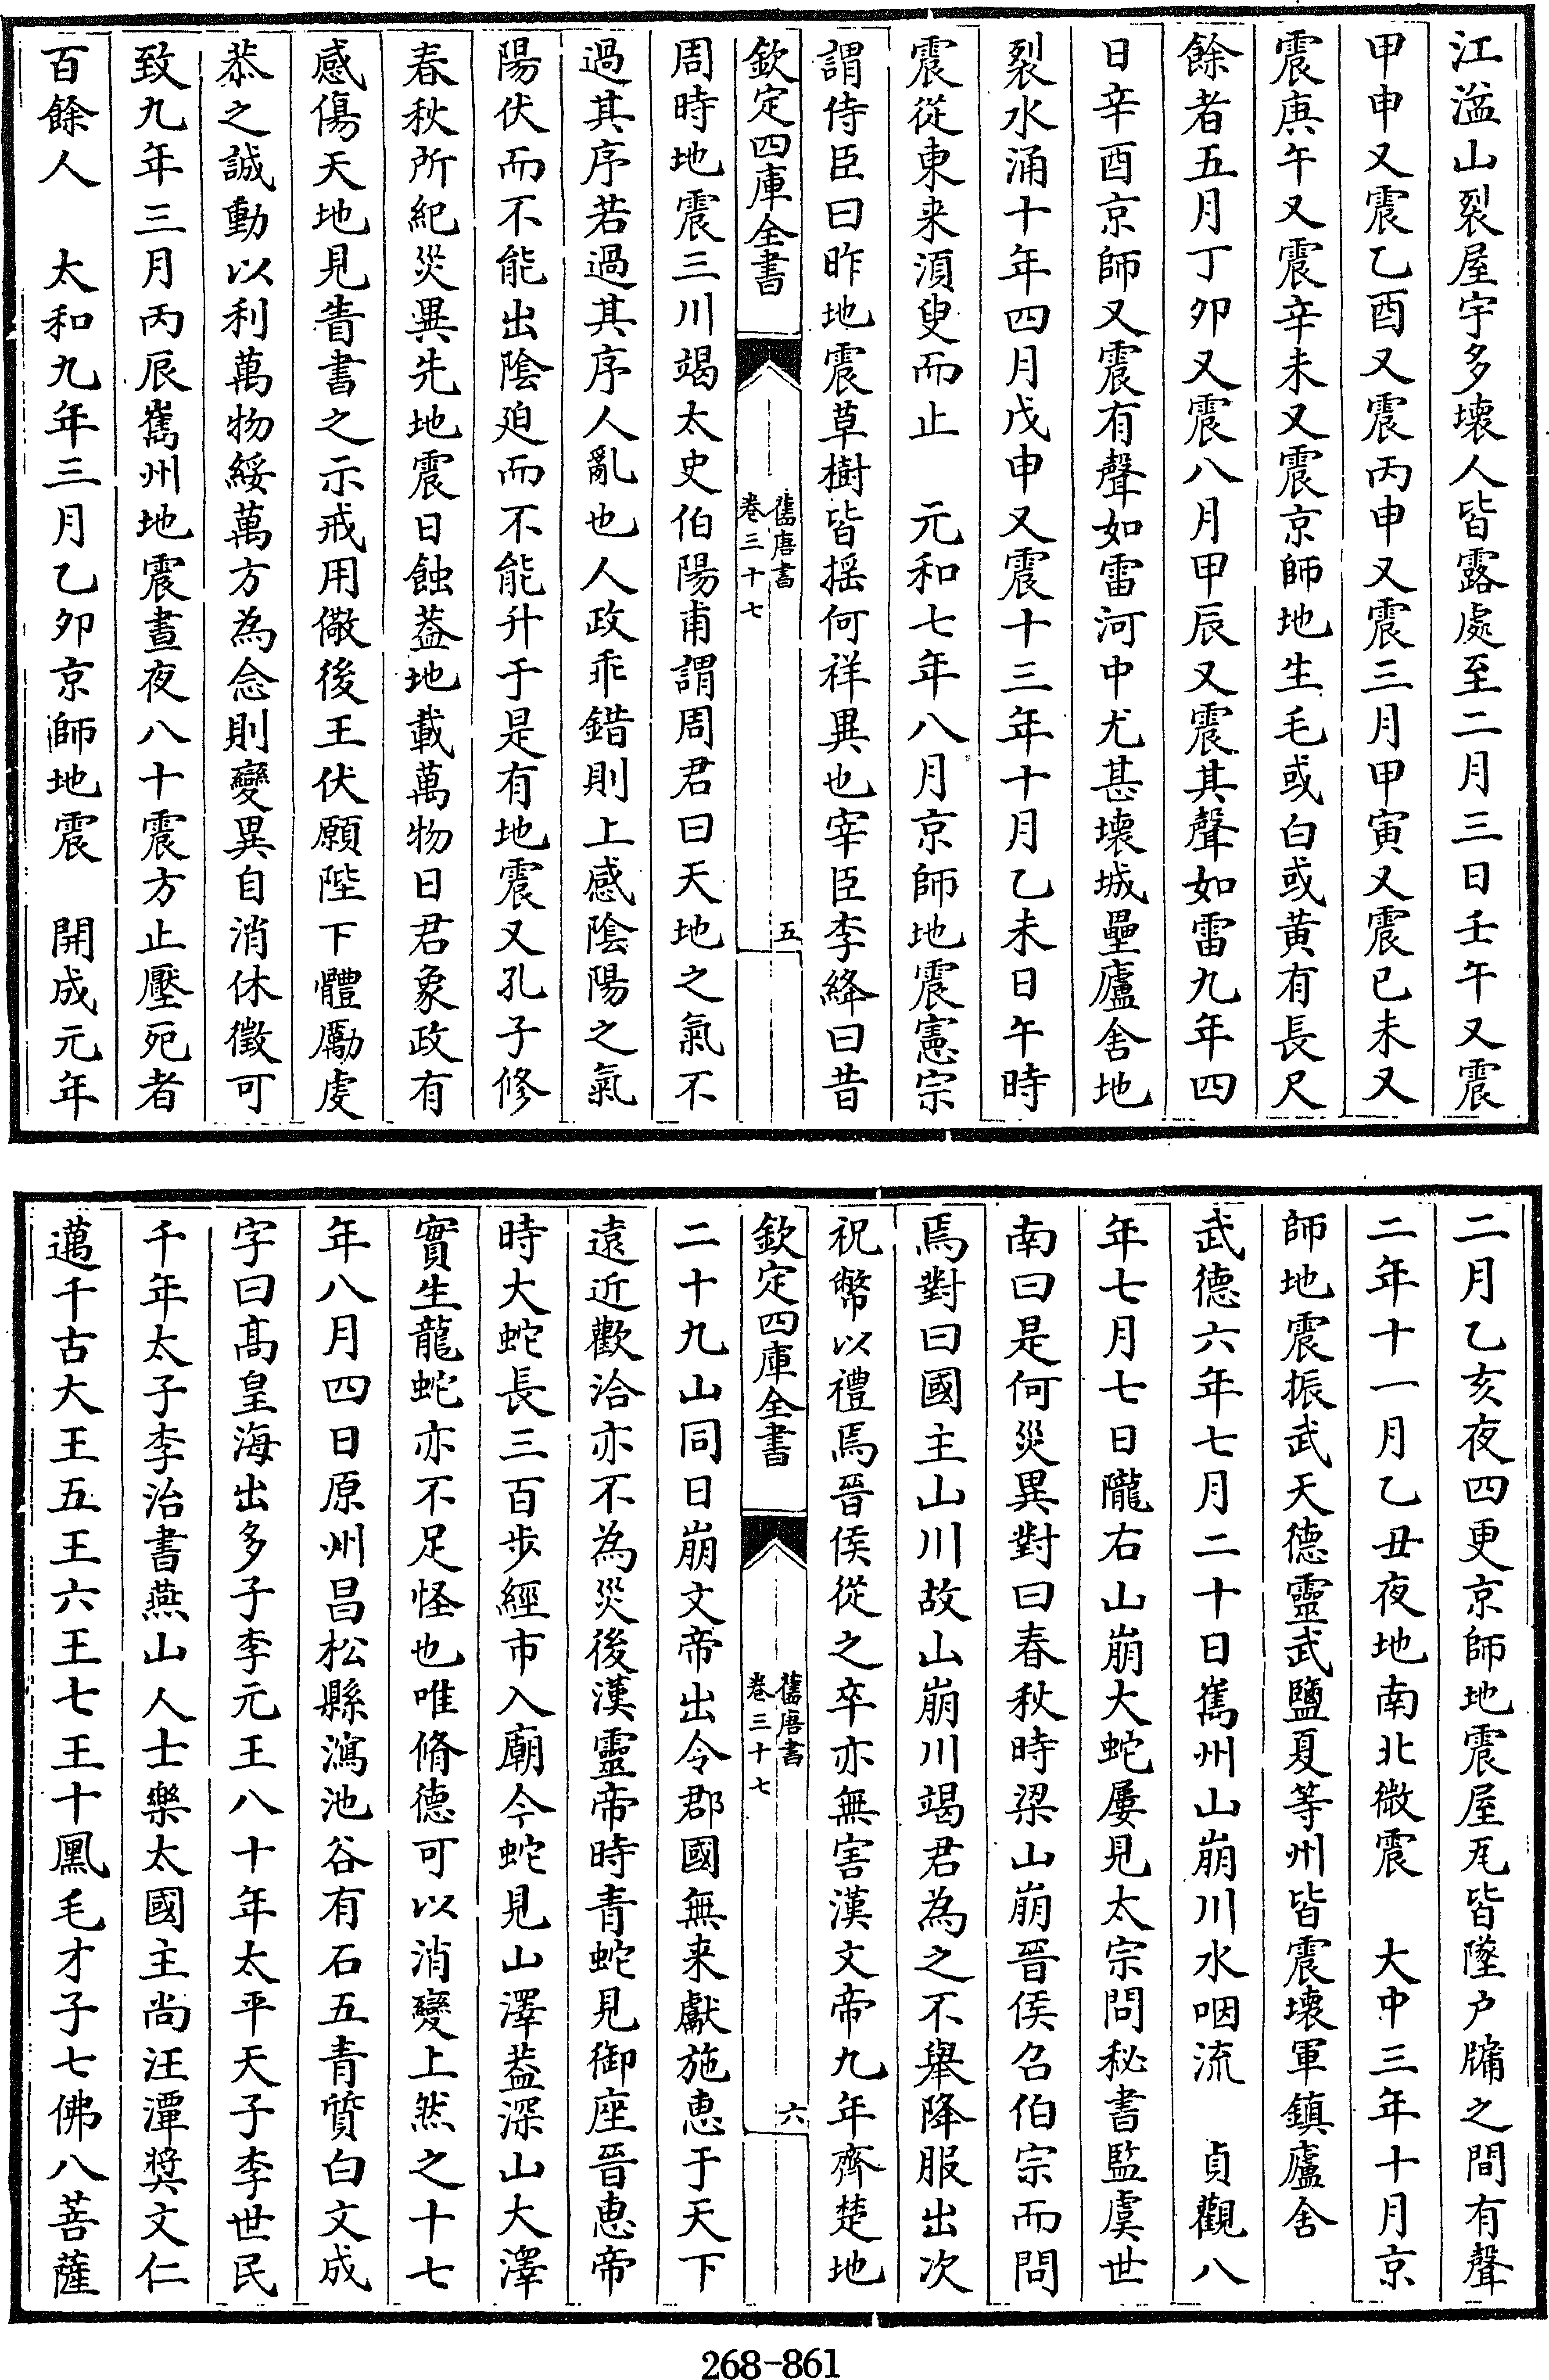 江溢山裂屋宇多壞人皆露處至二月三日壬午又震
甲申又震乙酉又震丙申又震三月甲寅又震已未又
震庚午又震辛未又震京師地生毛或白或黄有長尺
餘者五月丁夘又震八月甲辰又震其聲如雷九年四
日辛酉京師又震有聲如雷河中尤甚壊城壘廬舍地
裂水涌十年四月戊申又震十三年十月乙未日午時
震從東来湏臾而止　元和七年八月京師地震憲宗
謂侍臣曰昨地震草樹皆揺何祥異也宰臣李絳曰昔
欽定四庫全書
舊唐書
卷三十七
五
周時地震三川竭太史伯陽甫謂周君曰天地之氣不
過其序若過其序人亂也人政乖錯則上感陰陽之氣
陽伏而不能出陰廹而不能升于是有地震又孔子修
春秋所紀災異先地震日蝕葢地載萬物日君象政有
感傷天地見眚書之示戒用儆後王伏願陛下體勵虔
恭之誠動以利萬物綏萬方為念則變異自消休徵可
致九年三月丙辰嶲州地震晝夜八十震方止壓死者
百餘人　太和九年三月乙夘京師地震　開成元年
二月乙亥夜四更京師地震屋瓦皆墜户牖之間有聲
二年十一月乙丑夜地南北微震　大中三年十月京
師地震振武天德靈武鹽夏等州皆震壊軍鎮廬舍
武德六年七月二十日嶲州山崩川水咽流　貞觀八
年七月七日隴右山崩大蛇屢見太宗問秘書監虞世
南曰是何災異對曰春秋時梁山崩晉侯召伯宗而問
焉對曰國主山川故山崩川竭君為之不舉降服出次
祝幣以禮焉晉侯從之卒亦無害漢文帝九年齊楚地
欽定四庫全書
舊唐書
卷三十七
六
二十九山同日崩文帝出令郡國無来獻施恵于天下
遠近歡洽亦不為災後漢靈帝時青蛇見御座晉恵帝
時大蛇長三百步經市入廟今蛇見山澤葢深山大澤
實生龍蛇亦不足怪也唯脩德可以消變上然之十七
年八月四日原州昌松縣鴻池谷有石五青質白文成
字曰髙皇海出多子李元王八十年太平天子李世民
千年太子李治書燕山人士樂太國主尚汪潭奬文仁
邁千古大王五王六王七王十鳳毛才子七佛八菩薩
268-861